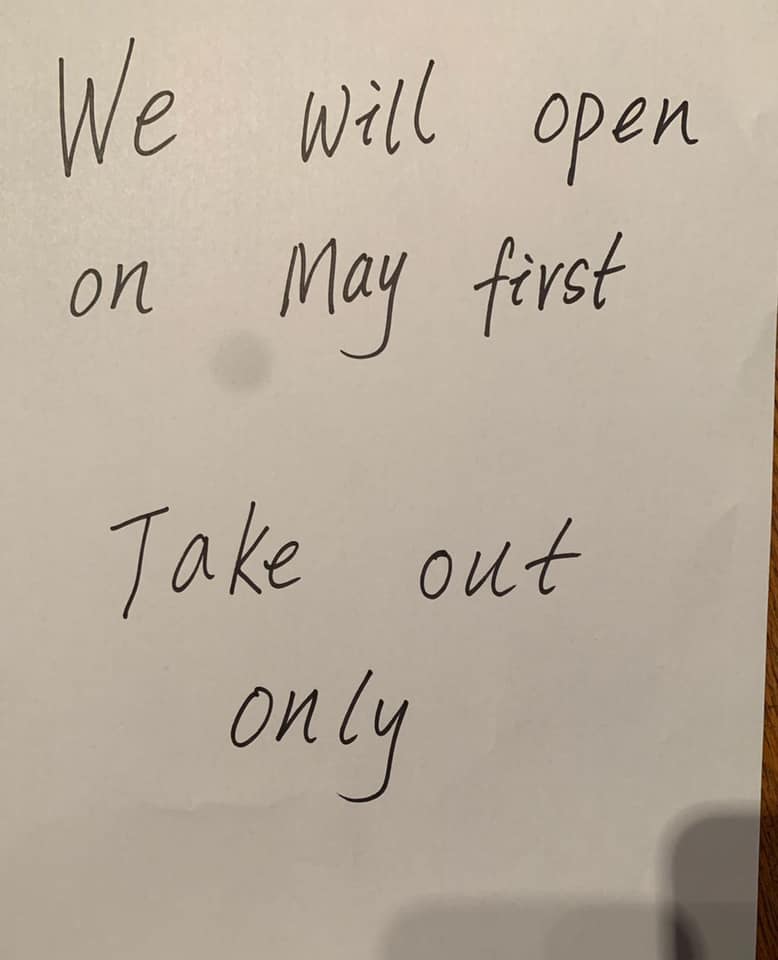 We will open
on May first
Take out
only